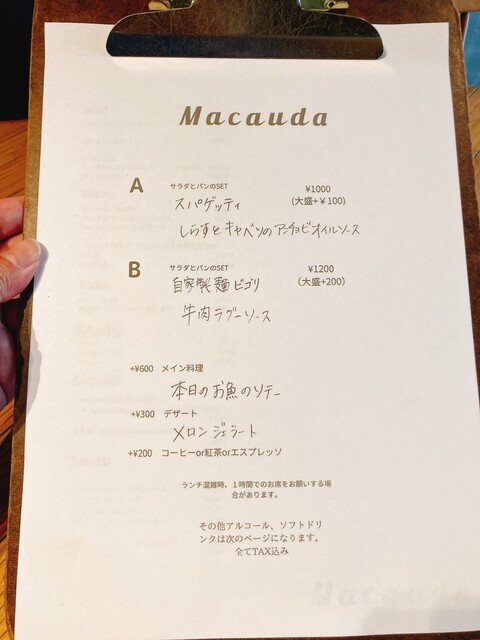 Macauda
A サラダとパンのSET ¥1000
スパゲッティ (大盛+¥100)
しらすとキャベツのアンチョビオイルソース
B サラダとパンのSET ¥1200
自家製麺ピゴリ (大盛+200)
牛肉ラグーソース
+¥600 メイン料理
本日のお魚のソテー
+¥300 デザート
メロンジェラート
+¥200 コーヒーor紅茶orエスプレッソ
ランチ混雑時、1時間でのお席をお願いする場
合があります。
その他アルコール、ソフトドリ
ンクは次のページになります。
全てTAX込み
Macauda